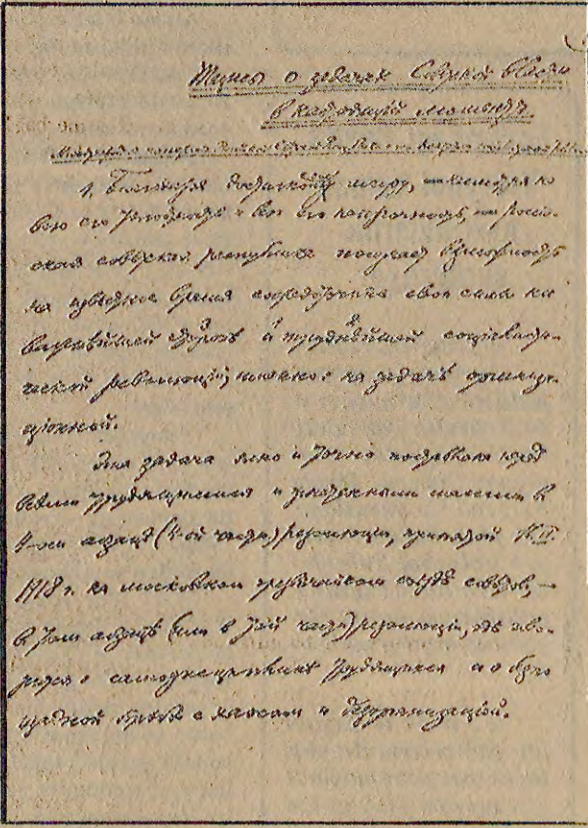 Тезисы о задачах Советской власти
в настоящий моментъ.
1. Благодаря достигнутому миру, — несмотря на
всю его тягостность и всю его непрочность, — Россій-
ская советская республика получает возможность
на известное время сосредоточить свои силы на
важнейшей сторонѣ и труднѣйшей соціалисти-
ческой революціи, именно: на задачѣ организа-
ціонной.
Эта задача ясно и точно поставлена перед
всеми трудящимися и угнетенными массами в
4-ом абзацѣ (4-ой части) резолюціи, принятой 16. III.
1918 г. на московском чрезвычайном съездѣ советов, —
в том абзацѣ (или в той части) резолюціи, гдѣ гово-
рится о самодисциплинѣ трудящихся и о беспо-
щадной борьбѣ с хаосом и дезорганизаціей.